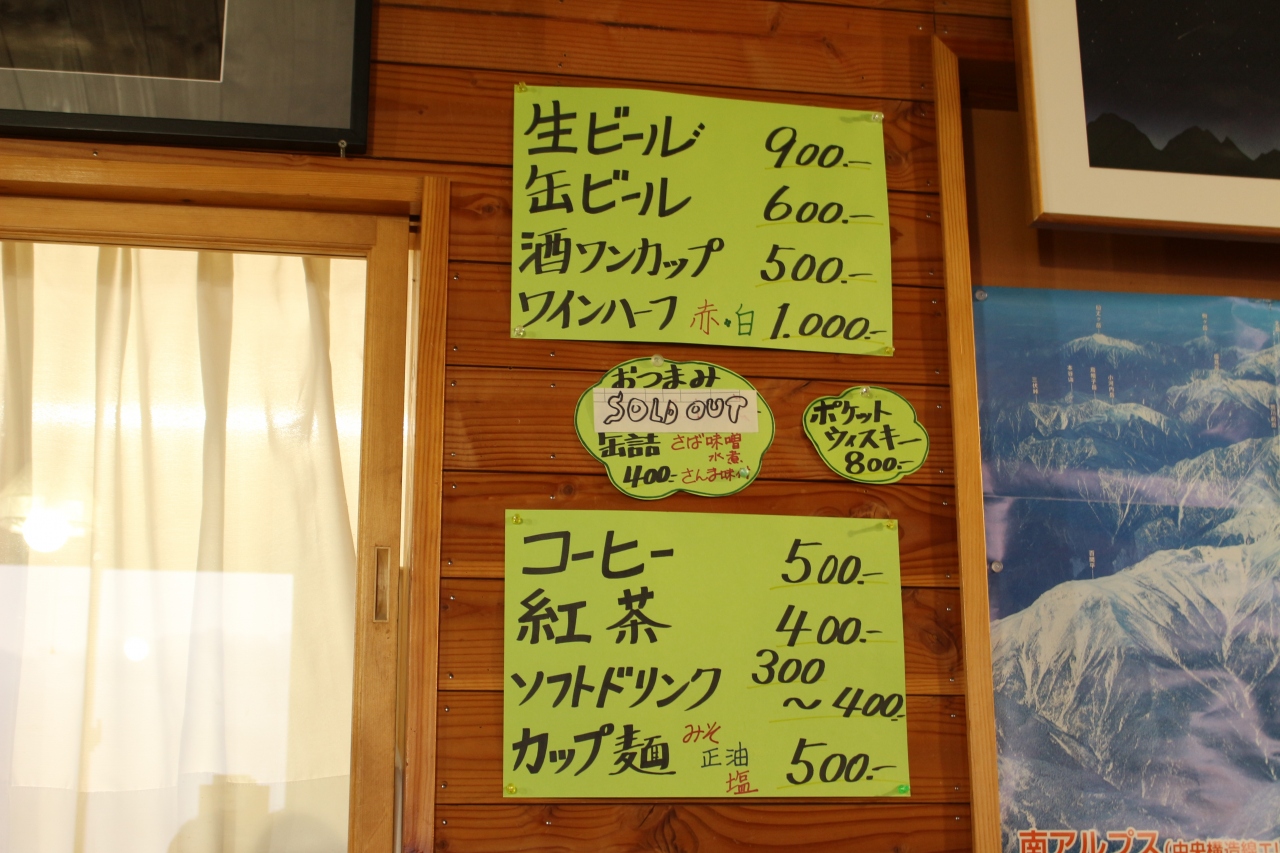 生ビール 900.-
缶ビール 600.-
酒ワンカップ 500.-
ワインハーフ 赤・白 1.000.-
おつまみ
SOLD OUT
缶詰 さば味噌
水煮
400.- さんま味付
ポケット
ウィスキー
800.-
コーヒー 500.-
紅茶 400.-
ソフトドリンク 300
～400.
カップ麺 みそ
正油
塩 500.-
南アルプス(中央構造線エ